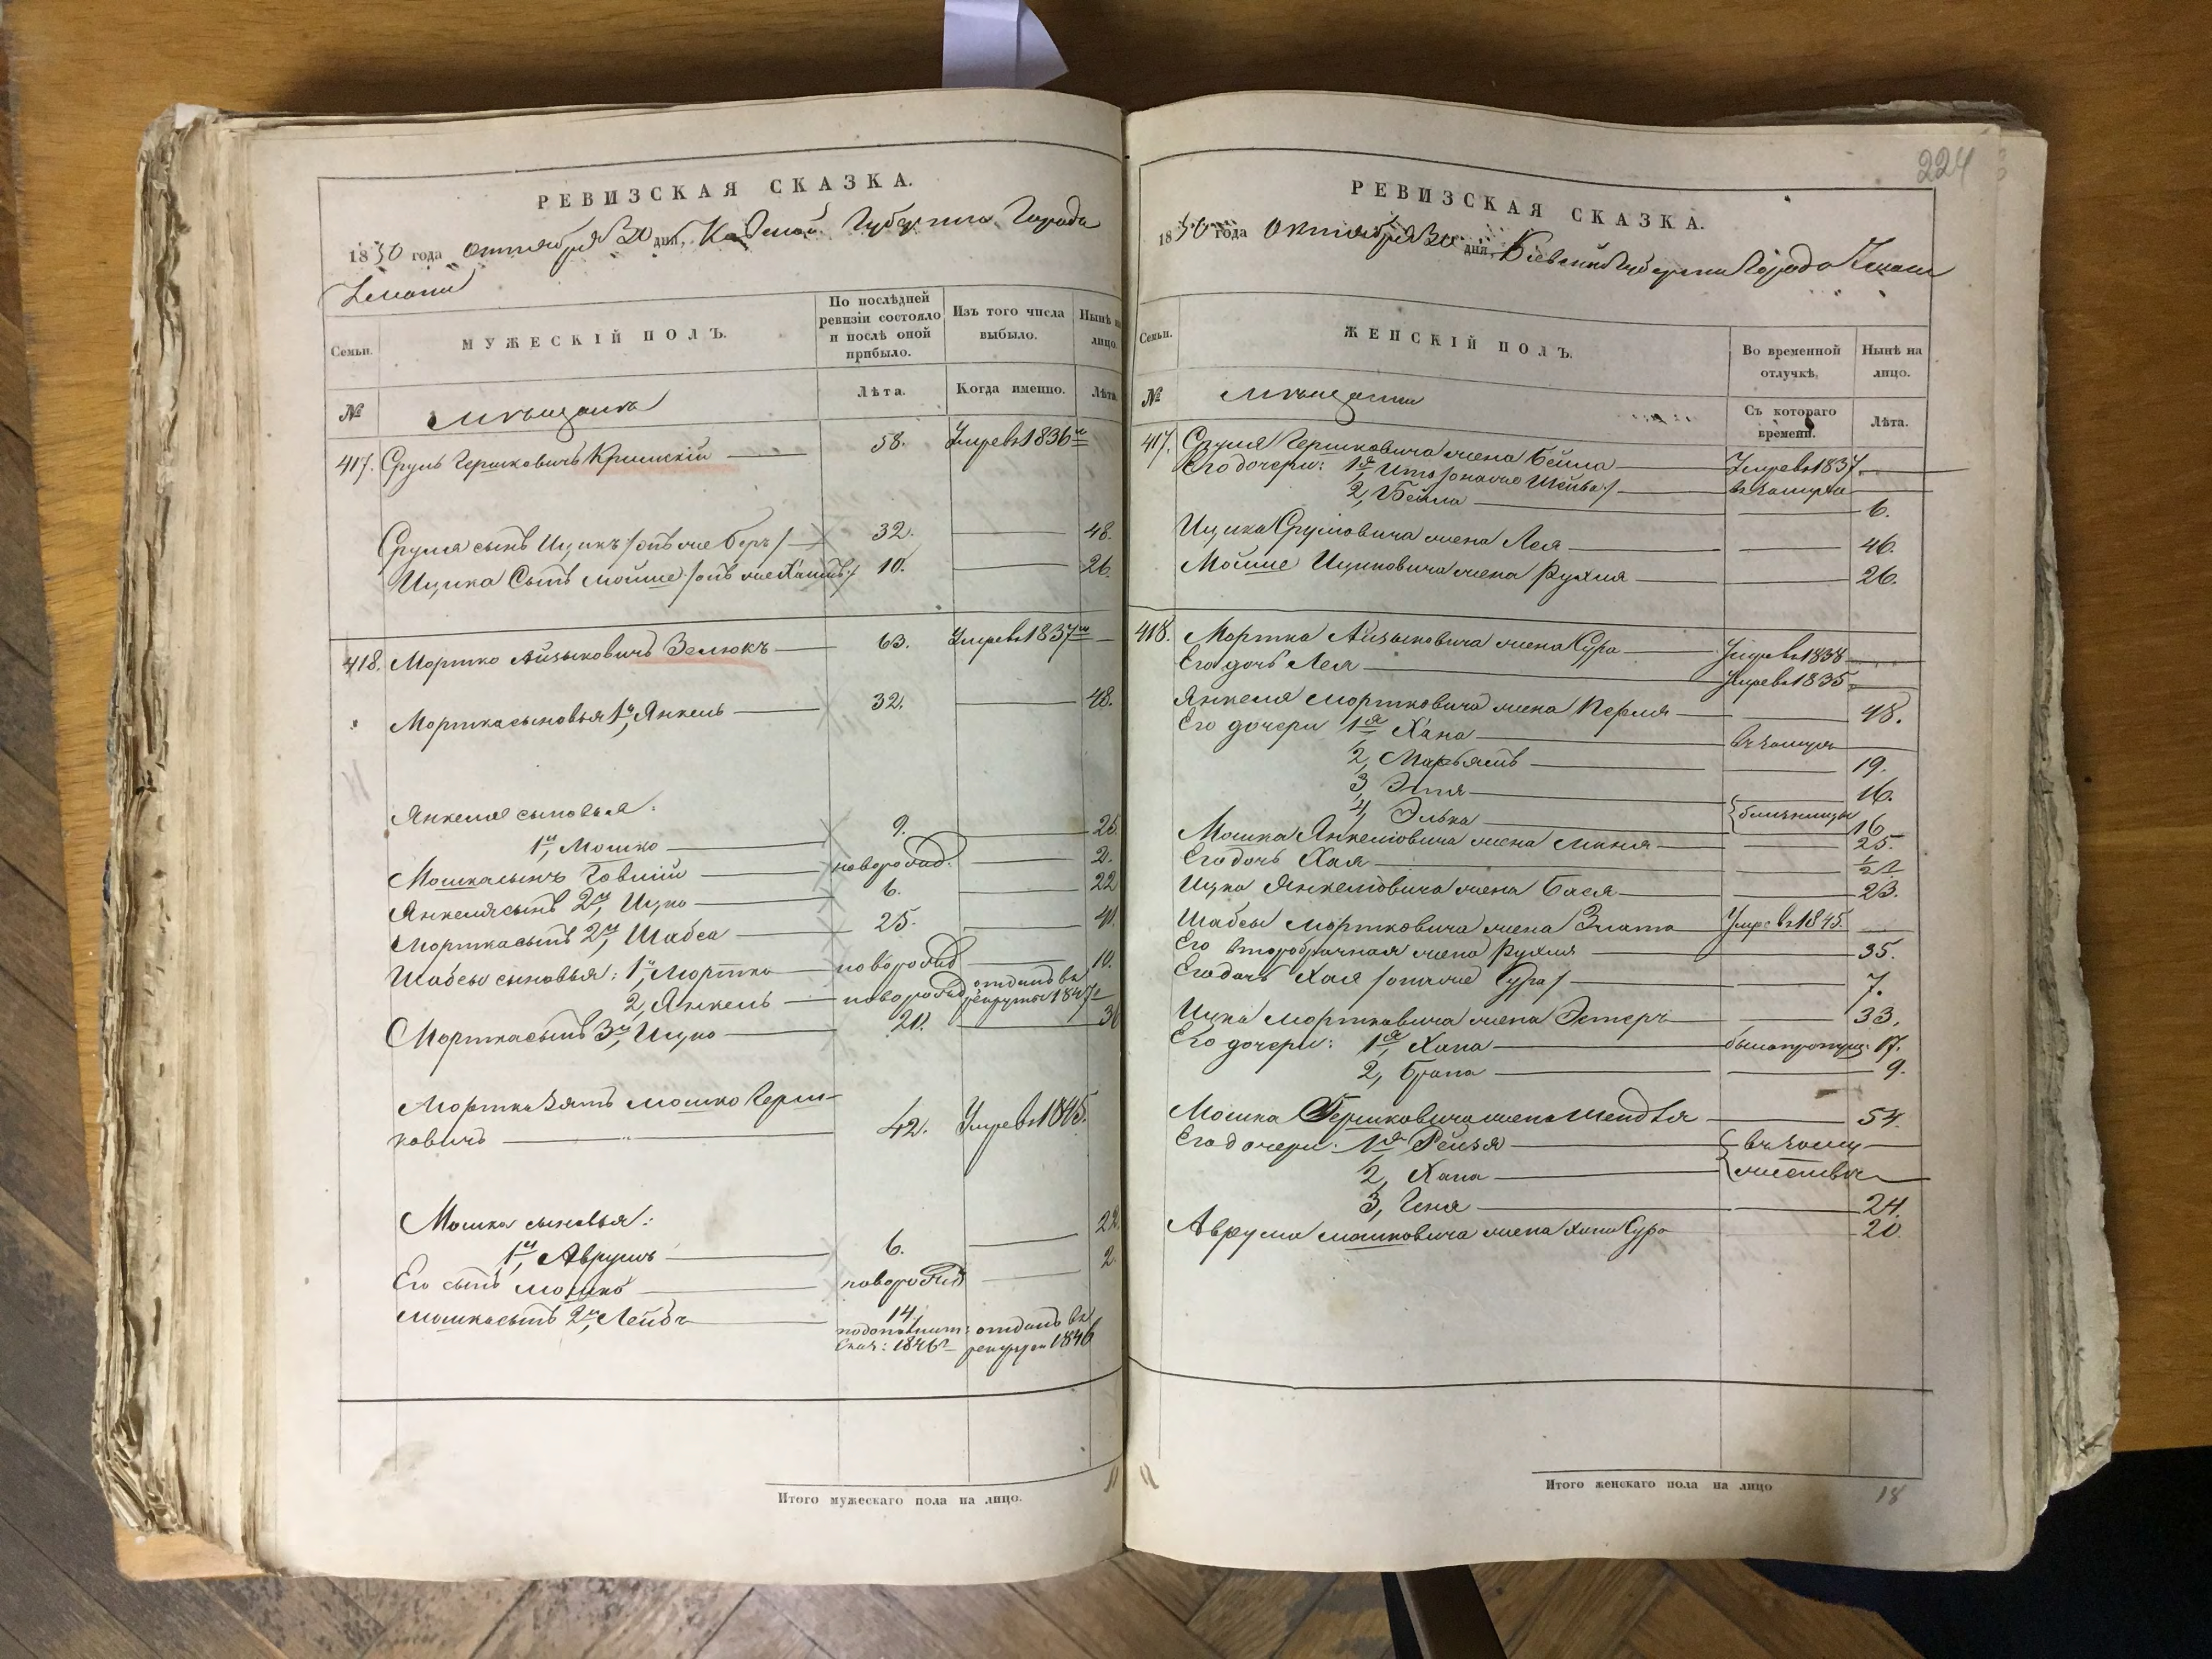 РЕВИЗСКАЯ СКАЗКА.
1850 года октября 30 дня, Киевской Губернии Города
Умани
Семьи.
МУЖЕСКІЙ ПОЛЪ.
По послѣдней ревизіи состояло и послѣ оной прибыло.
Изъ того числа выбыло.
Нынѣ на лицо.
№
мѣщане
Лѣта.
Когда именно.
Лѣта.
417. Сруль Гершковичъ Крымскій 58. Умре въ 1836 мъ
Сруля сынъ Ицикъ /онъ же Беръ/ 32. 48.
Ицика Сынъ Мойше /онъ же Хаимъ/ 10. 26.
418. Мортко Айзыковичъ Зелюкъ 63. Умре въ 1837 мъ
Мортка сыновья 1й, Янкель 32. 48.
Янкеля сыновья:
1й, Мошко 9. 25.
Мошка сынъ Говшій новорожд. 2.
Янкеля сынъ 2й, Ицко 6. 22
Мортка сынъ 2й, Шабса 25. 41.
Шабсы сыновья: 1й, Мортко новорожд 10.
2, Янкель новорожд отданъ въ рекруты 1847 г
Мортка сынъ 3й, Ицко 20. 36
Мортка зять Мошко Герш-
ковичъ 42. Умре въ 1845.
Мошка сыновья:
1й, Аврумъ 6. 22.
Его сынъ Мошко новорожд 2.
Мошка сынъ 2й, Лейбъ 14,
по дополнит: отданъ въ
сказ: 1846 г рекруты 1846
Итого мужескаго пола на лицо.
224
РЕВИЗСКАЯ СКАЗКА.
1850 года Октября 30 дня, Кіевской Губерніи Города Умани
Семьи.
ЖЕНСКІЙ ПОЛЪ.
Во временной отлучкѣ,
Нынѣ на лицо.
№
мѣщане
Съ котораго времени.
Лѣта.
417. Сруля Гершковича жена Бейла Умре въ 1837.
Его дочери: 1я Ита /она же Шейва/ въ замуже
2, Бейла 6.
Ицика Срулiовича жена Лея 46.
Мойше Ициковича жена Рухля 26.
418. Мортка Айзыковича жена Сура Умре въ 1838
Его дочь Лея Умре въ 1835
Янкеля Мортковича жена Перля 48.
Его дочери 1я Хана въ замуж
2, Марьямъ 19.
3, Этя 16.
4, Элька близницы 16
Мошка Янкелiовича жена Маня 25.
Его дочь Хая 1/2
Ицка Янкелiовича жена Бася 23.
Шабсы Мортковича жена Злата Умре въ 1845.
Его второбрачная жена Рухля 35.
Его дочь Хая /она же Сура/ 7.
Ицка Мортковича жена Эстеръ 33.
Его дочери: 1я, Хана была пропущ: 17.
2, Брана 9.
Мошка Гершковича жена Шендля 54.
Его дочери: 1я Рейзя въ замуж
2, Хана
3, Геня 24.
Аврума Мошковича жена Хана Сура 20.
Итого женскаго пола на лицо 18